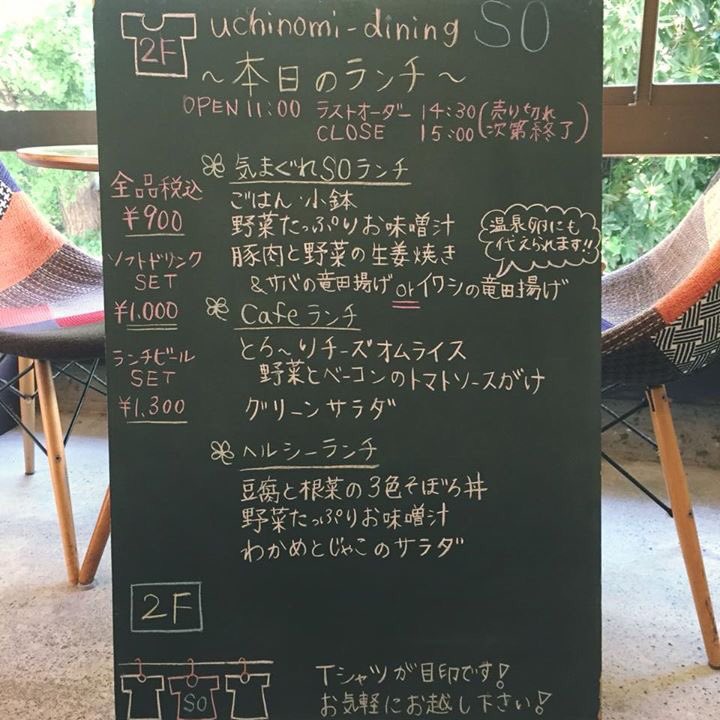 2F
uchinomi-dining SO
～本日のランチ～
OPEN 11:00 ラストオーダー 14:30
CLOSE 15:00
(売り切れ
次第終了)
全品税込
¥900
ソフトドリンク
SET
¥1.000
ランチビール
SET
¥1,300
気まぐれSOランチ
ごはん・小鉢
野菜たっぷりお味噌汁
豚肉と野菜の生姜焼き
&サバの竜田揚げ or イワシの竜田揚げ
温泉卵にも
代えられます!!
Cafeランチ
とろ〜りチーズオムライス
野菜とベーコンのトマトソースがけ
グリーンサラダ
ヘルシーランチ
豆腐と根菜の3色そぼろ丼
野菜たっぷりお味噌汁
わかめとじゃこのサラダ
2F
SO
Tシャツが目印です!
お気軽にお越し下さい!